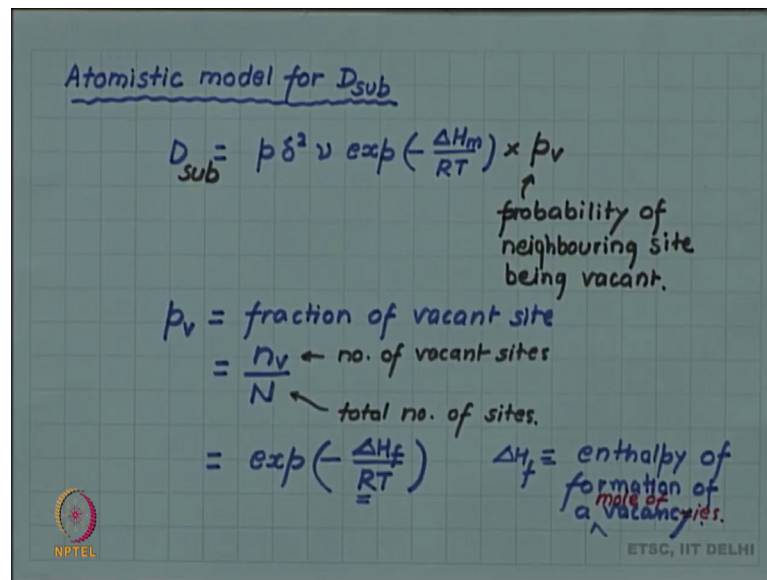 Atomistic model for Dsub
Dsub = p δ² ν exp(-ΔHm/RT) × pv
probability of
neighbouring site
being vacant.
pv = fraction of vacant site
= nv/N ← no. of vacant sites
total no. of sites.
= exp(-ΔHf/RT) ΔHf ≡ enthalpy of
formation of
a mole of vacancies.
NPTEL
ETSC, IIT DELHI